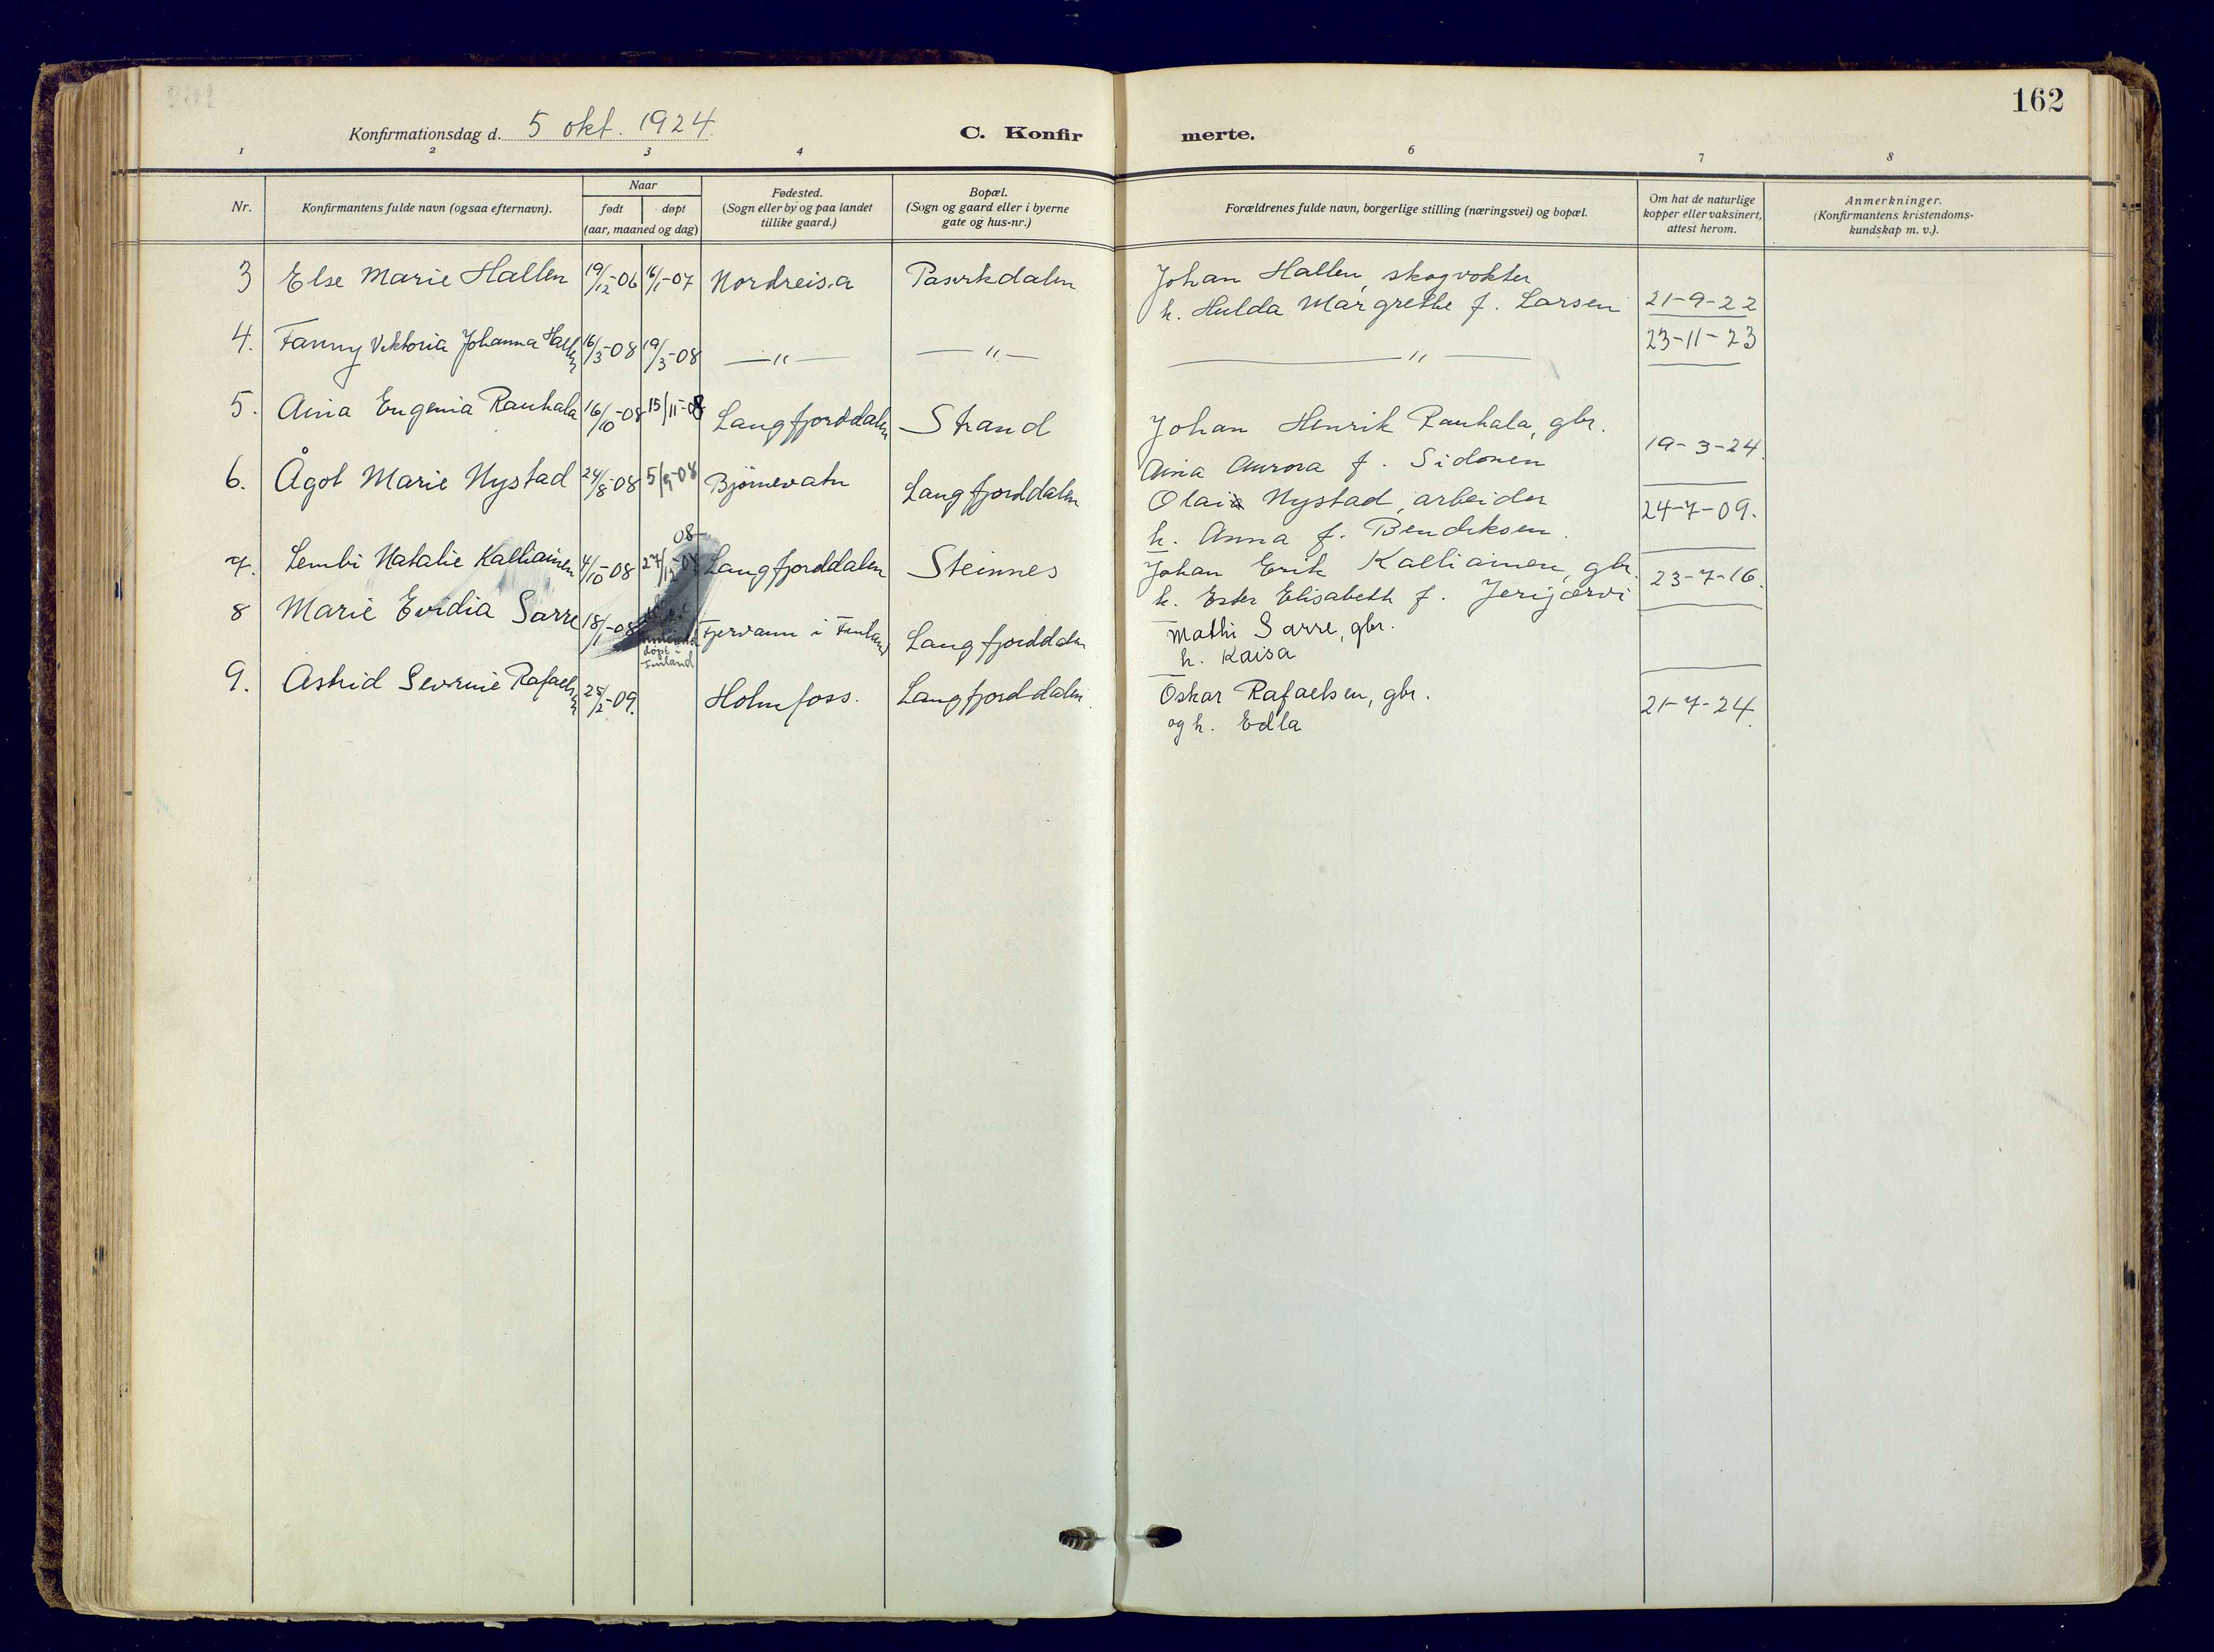 162
Konfirmationsdag d. 5 okt. 1924.
C. Konfirmerte.
1 2 3 4 6 7 8
Nr.
Konfirmantens fulde navn (ogsaa efternavn).
Naar
født døpt
(aar, maaned og dag)
Fødested.
(Sogn eller by og paa landet
tillike gaard.)
Bopæl.
(Sogn og gaard eller i byerne
gate og hus-nr.)
Forældrenes fulde navn, borgerlige stilling (næringsvei) og bopæl.
Om hat de naturlige
kopper eller vaksinert,
attest herom.
Anmerkninger.
(Konfirmantens kristendoms-
kundskap m. v.).
3 Else Marie Hallen 19/12-06 16/1-07 Nordreisa Pasvikdalen Johan Hallen, skogvokter
h. Hulda Margrethe f. Larsen 21-9-22
4. Fanny Viktoria Johanna Hallen 16/3-08 19/3-08 —"— —"— —"— 23-11-23
5. Aina Eugenia Rauhala 16/10-08 15/11-08 Langfjorddalen Strand Johan Henrik Rauhala, gbr.
Aina Aurora f. Sidonen 19-3-24.
6. Ågot Marie Nystad 24/8-08 5/9-08 Bjørnevatn Langfjorddalen Olai Nystad, arbeider
h. Anna f. Bendiksen. 24-7-09.
08
7. Lembi Natalie Kalliainen 4/10-08 27/12 Langfjorddalen Steinnes Johan Erik Kalliainen, gbr.
h. Ester Elisabeth f. Jerijærvi 23-7-16.
8 Marie Evidia Sarre 18/1-08 døpt i
Finland i Finland Langfjorddalen Mathi Sarre, gbr.
h. Kaisa
9. Astrid Severine Rafaelsen 25/2-09. Holmfoss. Langfjorddalen. Oskar Rafaelsen, gbr.
og h. Edla 21-7-24.